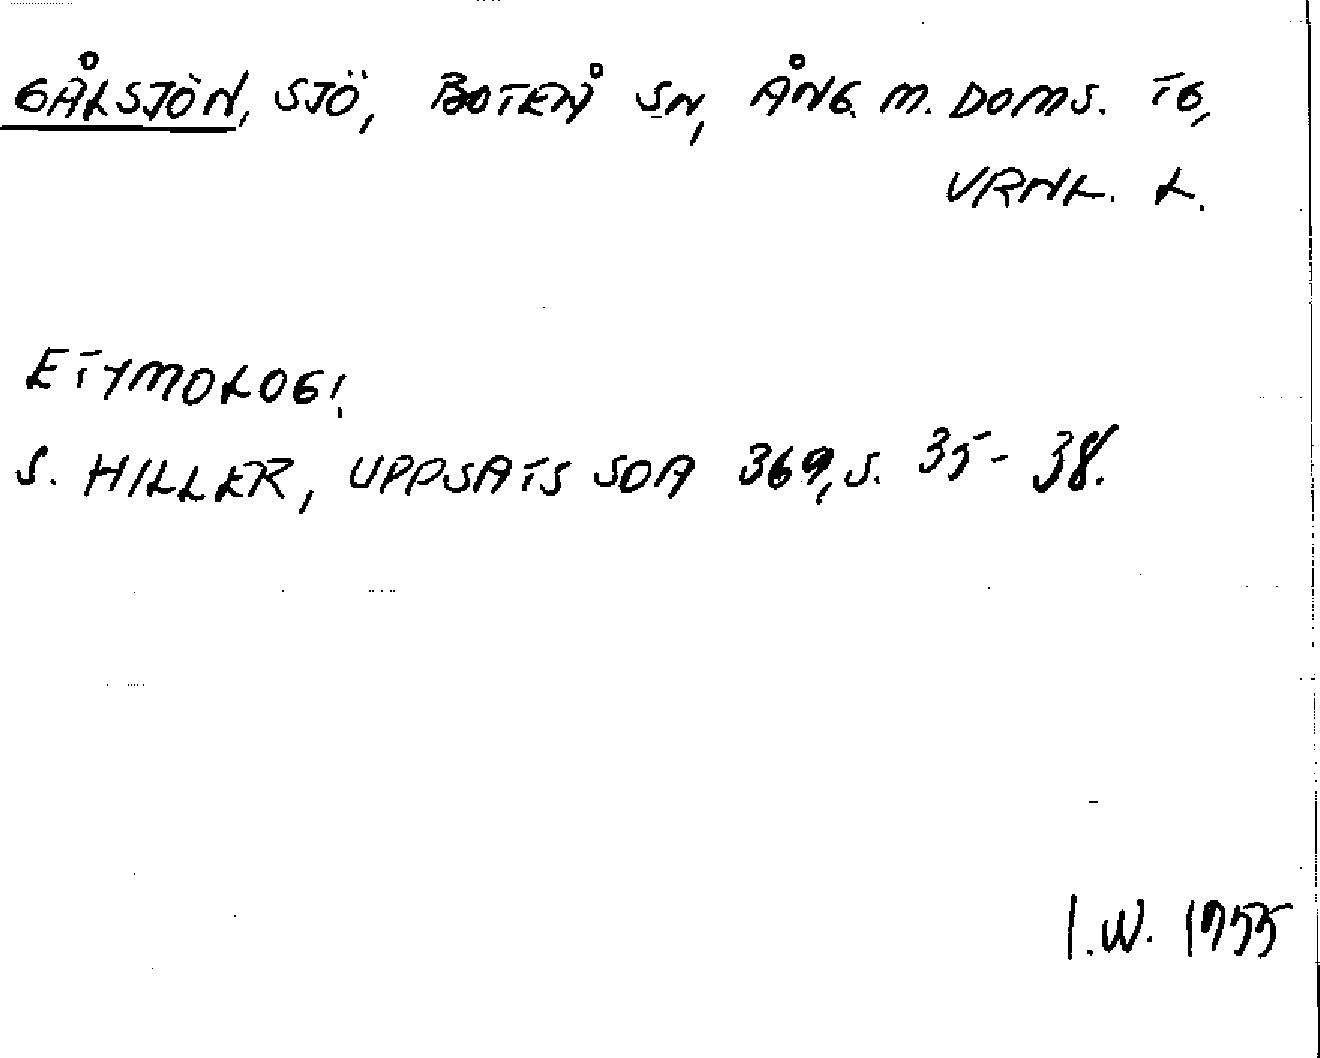 GÅLSJÖN, SJÖ, BOTEÅ SN, ÅNG. M. DOMS. TG,
VRNL. L.
ETYMOLOGI.
S. HILLER, UPPSATS SOA 369, S. 35-38.
I.W. 1955